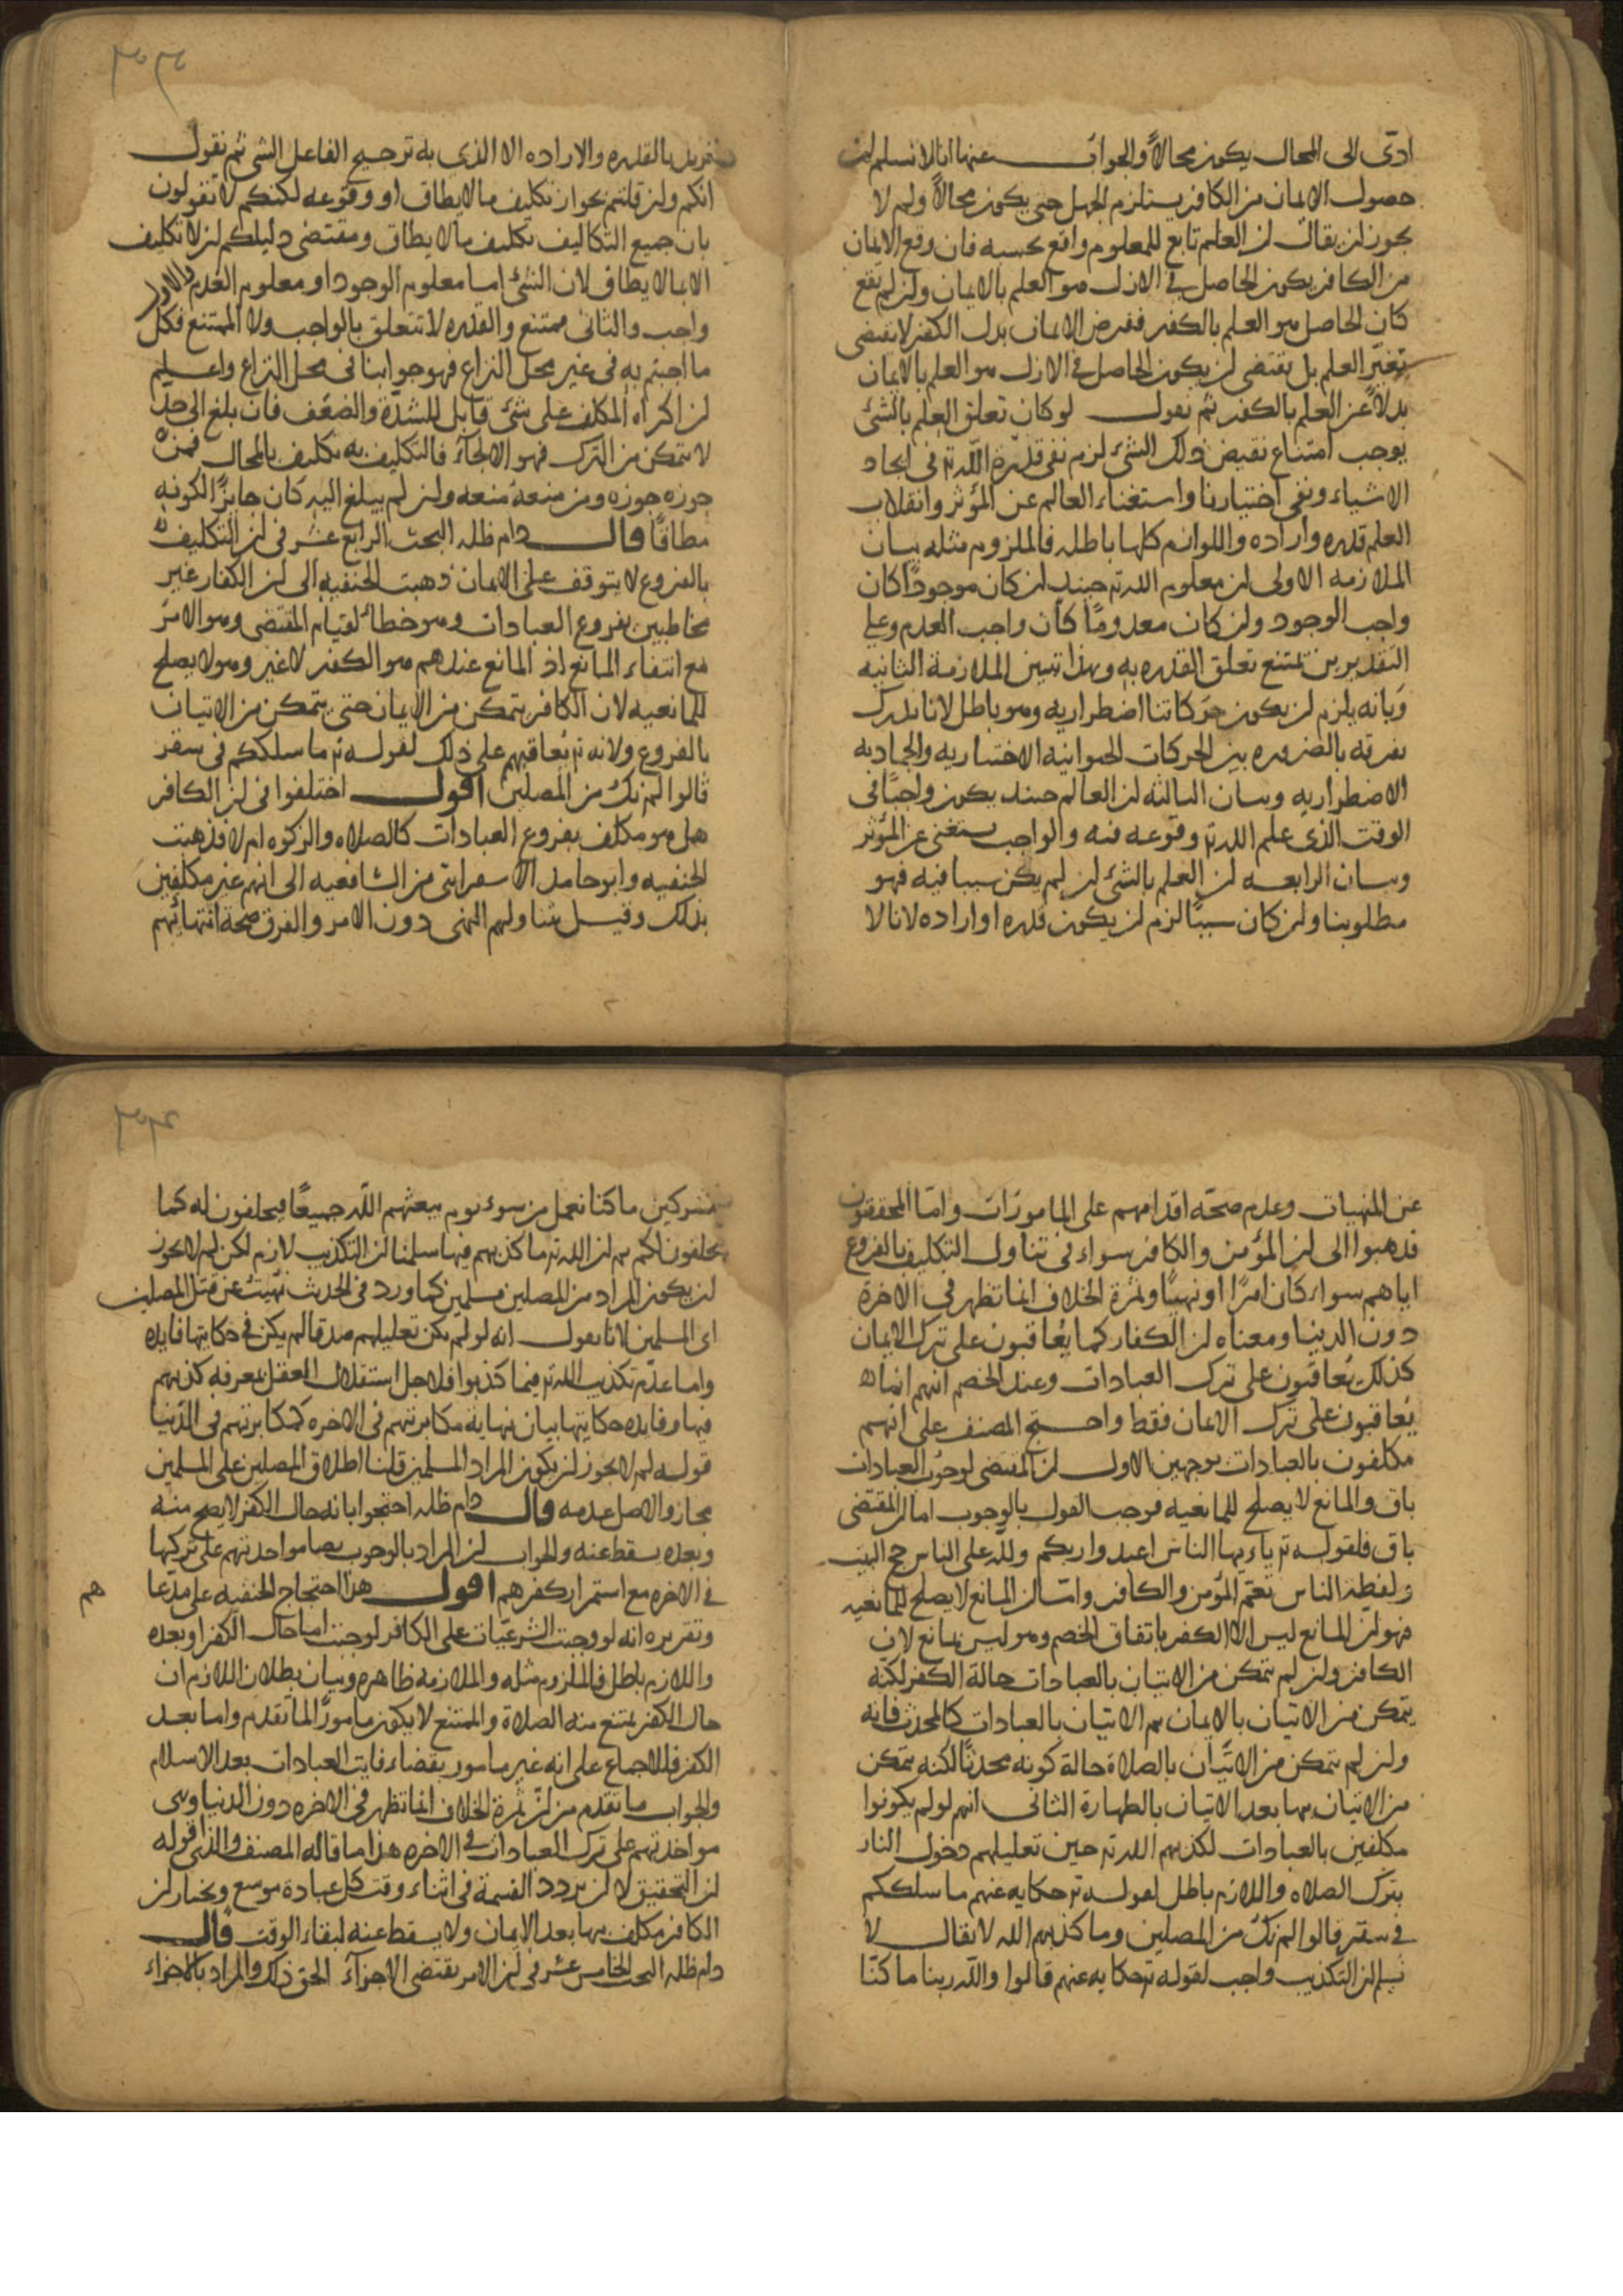 ادّى الى المحال يكون محالاً والجواب عنها انا لا نسلم ان
حصول الايمان من الكافر يستلزم الجهل حتى يكون محالاً ولم لا
يجوز ان يقال ان العلم تابع للمعلوم واقع بحسبه فان وقع الايمان
من الكافر يكون الحاصل في الازل هو العلم بالايمان وان لم يقع
كان الحاصل هو العلم بالكفر ففرض الايمان بدل الكفر لا يقتضى
تغيّر العلم بل يقتضى ان يكون الحاصل في الازل هو العلم بالايمان
بدلاً عن العلم بالكفر ثم نقول لو كان تعلق العلم بالشئ
يوجب امتناع نقيض ذلك الشئ لزم نفى قدرة الله تع فى ايجاد
الاشياء ونفى اختيارنا واستغناء العالم عن المؤثر وانقلاب
العلم قدره واراده واللوازم كلها باطله فالملزوم مثله بيان
الملازمه الاولى ان معلوم الله تع حينئذ ان كان موجودًا كان
واجب الوجود وان كان معدومًا كان واجب العدم وعلى
التقديرين يمتنع تعلق القدره به وبهذا تبين الملازمة الثانيه
وبانه يلزم ان يكون حركاتنا اضطراريه وهو باطل لانا ندرك
تفرقه بالضروره بين الحركات الحيوانيه الاختياريه والجماديه
الاضطراريه وبيان الثالثه ان العالم حينئذ يكون واجبًا فى
الوقت الذى علم الله تع وقوعه فيه والواجب يستغنى عن المؤثر
وبيان الرابعه ان العلم بالشئ ان لم يكن سببا فيه فهو
مطلوبنا وان كان سببًا لزم ان يكون قدره او اراده لانا لا
نريد بالقدره والاراده الا الذى به ترجيح الفاعل الشى ثم نقول
انكم وان قلتم بجواز تكليف ما لا يطاق او وقوعه لكنكم لا تقولون
بان جميع التكاليف تكليف بما لا يطاق ومقتضى دليلكم ان لا تكليف
الا بما لا يطاق لان الشئ اما معلوم الوجود او معلوم العدم والاول
واجب والثانى ممتنع والقدره لا تتعلق بالواجب ولا الممتنع فكل
ما اجبتم به فى غير محل النزاع فهو جوابنا فى محل النزاع واعلم
ان اكراه المكلف على شئ قابل للشدّة والضعف فان بلغ الى حدّ
لا يتمكن من الترك فهو الالجآء فالتكليف به تكليف بالمحال فمن
جوزه جوزه ومن منعه منعه وان لم يبلغ اليه كان جايزًا لكونه
مطاقًا قال دام ظله البحث الرابع عشر فى ان التكليف
بالفروع لا يتوقف على الايمان ذهبت الحنفيه الى ان الكفار غير
مخاطبين بفروع العبادات وهو خطأ لقيام المقتضى وهو الامر
مع انتفاء المانع اذ المانع عندهم هو الكفر لا غير وهو لا يصلح
للمانعيه لان الكافر يتمكن من الايمان حتى يتمكن من الاتيان
بالفروع ولانه تع يُعاقبهم على ذلك لقوله تع ما سلككم فى سقر
قالوا لم نك من المصلين اقول اختلفوا فى ان الكافر
هل هو مكلف بفروع العبادات كالصلاه والزكوه ام لا فذهبت
الحنفيه وابو حامد الاسفراينى من الشافعيه الى انهم غير مكلفين
بذلك وقيل يتناولهم النهى دون الامر والفرق صحة انتهائهم
عن المنهيات وعدم صحّة اقدامهم على المامورات وامّا المحققون
فذهبوا الى ان المؤمن والكافر سواء فى تناول التكليف بالفروع
اياهم سواء كان امرًا او نهيًا وثمرة الخلاف انما تظهر فى الاخرة
دون الدنيا ومعناه ان الكفار كما يُعاقبون على ترك الايمان
كذلك يُعاقبون على ترك العبادات وعند الخصم انهم انما
يُعاقبون على ترك الايمان فقط واحتج المصنف على انهم
مكلفون بالعبادات بوجهين الاول ان المقتضى لوجوب العبادات
باق والمانع لا يصلح للمانعيه فوجب القول بالوجوب اما ان المقتضى
باق فلقوله تع ياءيها الناس اعبدوا ربكم ولله على الناس حج البيت
ولفظة الناس تعمّ المؤمن والكافر وامّا ان المانع لا يصلح للمانعيه
فهو ان المانع ليس الا الكفر باتفاق الخصم وهو ليس بمانع لان
الكافر وان لم يتمكن من الاتيان بالعبادات حالة الكفر لكنّه
يتمكن من الاتيان بالايمان ثم الاتيان بالعبادات كالمحدث فانه
وان لم يتمكن من الاتيان بالصلاة حالة كونه محدثًا لكنه يتمكن
من الاتيان بها بعد الاتيان بالطهارة الثانى انهم لو لم يكونوا
مكلفين بالعبادات لكذبهم الله تع حين تعليلهم دخول النار
بترك الصلاه واللازم باطل لقوله تع حكايه عنهم ما سلككم
فى سقر قالوا لم نك من المصلين وما كذبهم الله لا يقال لا
نسلم ان التكذيب واجب لقوله تع حكايه عنهم قالوا والله ربنا ما كنّا
مشركين ما كنا نعمل من سوء يوم يبعثهم الله جميعًا فيحلفون له كما
يحلفون لكم ثم ان الله تع ما كذبهم فيها سلمنا ان التكذيب لازم لكن لم لا يجوز
ان يكون المراد من المصلين مسلمين كما ورد فى الحديث نُهيتُ عن قتل المصلين
اى المسلمين لانا نقول انه لو لم يكن تعليلهم صدقا لم يكن فى حكايتها فايده
واما عدم تكذيب الله تع فيما كذبوا فلاجل استقلال العقل بمعرفه كذبهم
فيها وفايده حكايتها بيان نهايه مكابرتهم فى الاخره كمكابرتهم فى الدنيا
قوله لم لا يجوز ان يكون المراد المسلمين قلنا اطلاق المصلين على المسلمين
مجاز والاصل عدمه قال دام ظله احتجوا بانه حال الكفر لا يصح منه
وبعده يسقط عنه والجواب ان المراد بالوجوب هنا مواخذتهم على تركها
فى الاخره مع استمرار كفرهم اقول هذا احتجاج الحنفيه على مدّعا
هم
وتقريره انه لو وجبت الشرعيّات على الكافر لوجبت اما حال الكفر او بعده
واللازم باطل فالملزوم مثله والملازمه ظاهره وبيان بطلان اللازم ان
حال الكفر يمتنع منه الصلاة والممتنع لا يكون مامورًا لما تقدم واما بعد
الكفر فللاجماع على انه غير مامور بقضاء فايت العبادات بعد الاسلام
والجواب ما تقدم من ان ثمرة الخلاف انما تظهر فى الاخره دون الدنيا وهى
مواخذتهم على ترك العبادات فى الاخره هذا ما قاله المصنف والذى اقوله
ان التحقيق لا ان يردد القسمة فى اثناء وقت كل عبادة موسع ويختار ان
الكافر مكلف بها بعد الايمان ولا يسقط عنه لبقاء الوقت قال
دام ظله البحث الخامس عشر فى ان الامر يقتضى الاجزآء الحق ذلك والمراد بالاجزاء